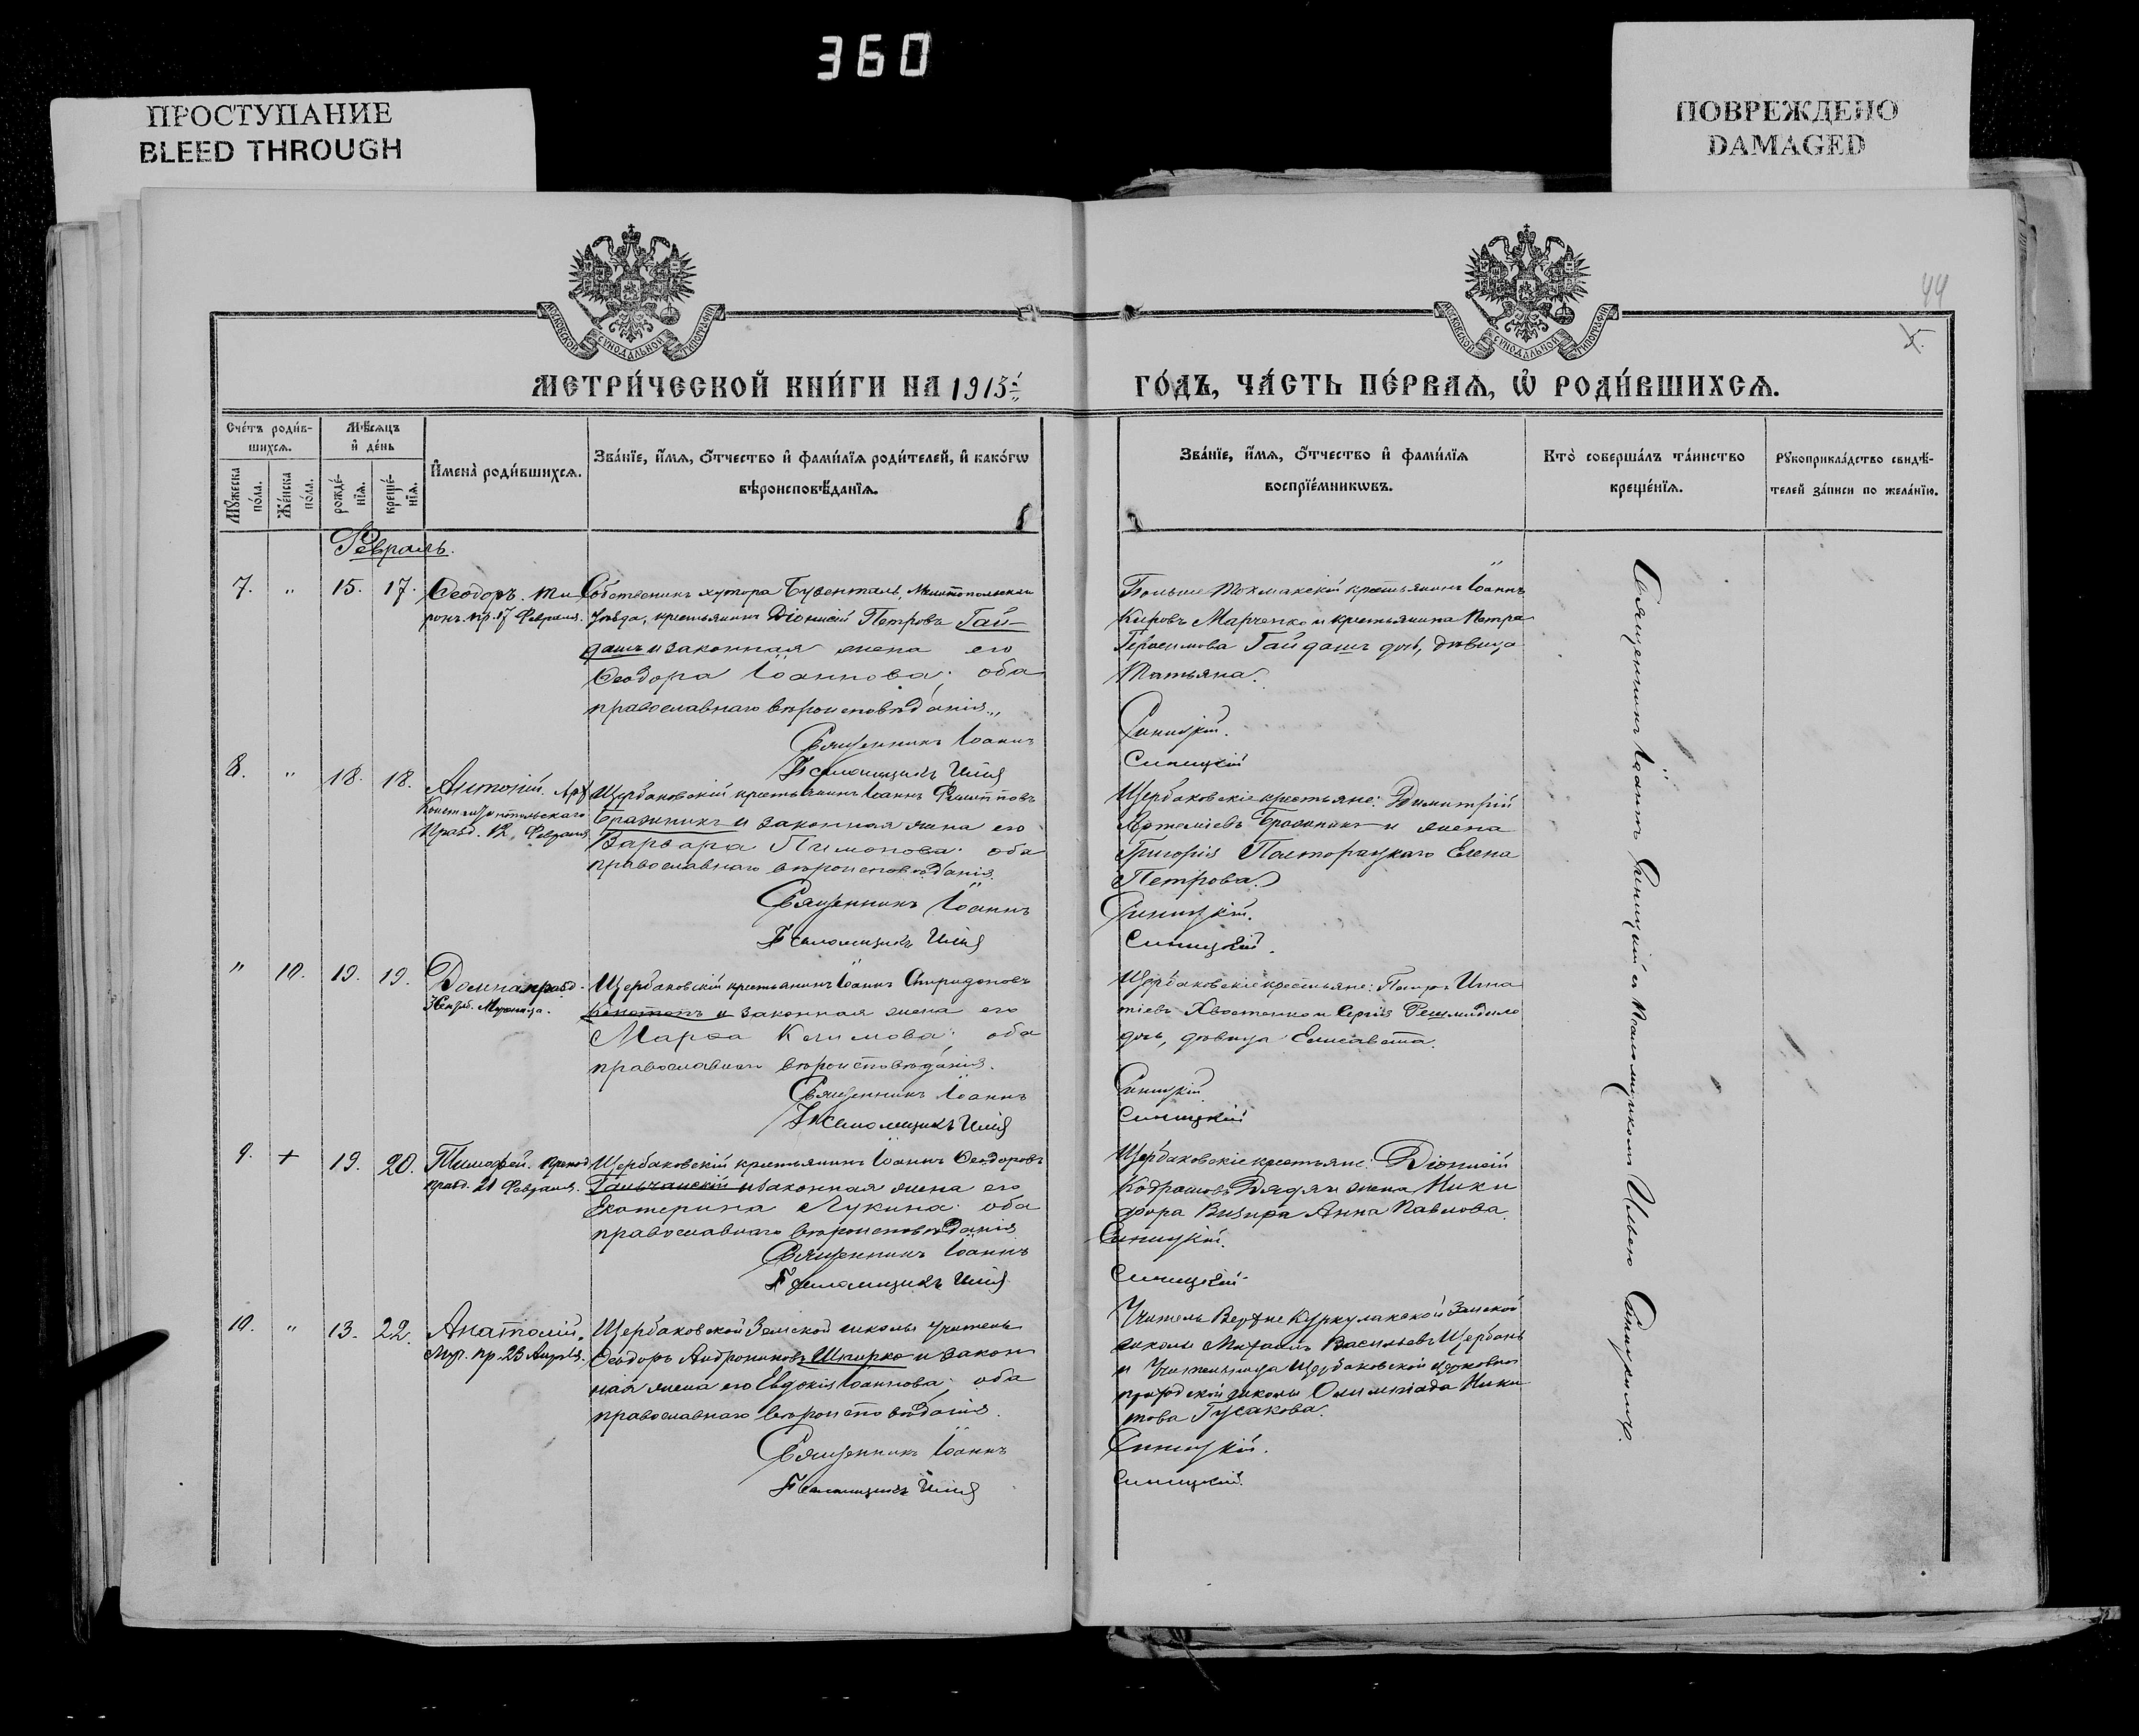 360
ПРОСТУПАНИЕ
BLEED THROUGH
ПОВРЕЖДЕНО
DAMAGED
44
МОСКОВСКОЙ СѴНОДАЛЬНОЙ ТИПОГРАФІИ
МОСКОВСКОЙ СѴНОДАЛЬНОЙ ТИПОГРАФІИ
МЕТРИ́ЧЕСКОЙ КНИ́ГИ НА 1913й
ГО́ДЪ, ЧА́СТЬ ПЕ́РВАѦ, Ѡ҆ РОДИ́ВШИХСѦ.
Сче́тъ роди́в-
шихсѧ.
Мѣ́сѧцъ
и҆ де́нь
Мꙋ́жеска
по́ла.
Же́нска
по́ла.
рожде́-
нїѧ.
креще́-
нїѧ.
И҆мена̀ роди́вшихсѧ.
Зва́нїе, и҆́мѧ, ѻ҆́тчество и҆ фами́лїѧ роди́телей, и҆ како́гѡ
вѣроисповѣ́данїѧ.
Зва́нїе, и҆́мѧ, ѻ҆́тчество и҆ фами́лїѧ
воспрїе́мникѡвъ.
Кто̀ соверша́лъ та́инство
креще́нїѧ.
Рꙋкоприкла́дство свидѣ́-
телей за́писи по жела́нїю.
Февраль.
7. " 15. 17. Ѳеодоръ. Ти
ронъ. пр. 17 Февраля.
Собственникъ хутора Бузенталь, Мелитопольскаго
уѣзда, крестьянинъ Діонисій Петровъ Гай-
дашъ и законная жена его
Ѳеодора Іоаннова; оба
православнаго вѣроисповѣданія.
Священникъ Іоаннъ
Псаломщикъ Илія
Больше Токмакскій крестьянинъ Іоаннъ
Кировъ Марченко и крестьянина Петра
Герасимова Гайдашъ дочь, дѣвица
Татьяна.
Синицкій.
Синицкій
8. " 18. 18. Антоній. Арх
Константинопольскаго
Празд. 12. Февраля
Щербаковскій крестьянинъ Іоаннъ Филипповъ
Бражникъ и законная жена его
Варвара Пимонова; оба
православнаго вѣроисповѣданія.
Священникъ Іоаннъ
Псаломщикъ Илія
Щербаковскіе крестьяне: Димитрій
Артеміевъ Бражникъ и жена
Григорія Полторацкаго Елена
Петрова.
Синицкій.
Синицкій.
" 10. 19. 19. Домна празд.
Мученица.
Щербаковскій крестьянинъ Іоаннъ Спиридоновъ
и законная жена его
Марѳа оба
православнаго вѣроисповѣданія.
Священникъ Іоаннъ
Псаломщикъ Илія
Щербаковскіе крестьяне: Петръ Игна
тіевъ Хвостенко и Сергія
дочь, дѣвица Елисавета.
Синицкій
Синицкій
9. + 19. 20. Тимоѳей. Препод
празд. 21 Февраля.
Щербаковскій крестьянинъ Іоаннъ Ѳеодоровъ
Гальчанскій и законная жена его
Екатерина Лукина; оба
православнаго вѣроисповѣданія
Священникъ Іоаннъ
Псаломщикъ Илія
Щербаковскіе крестьяне: Діонисій
жена Ники
фора Визира Анна Павлова.
Синицкій.
Синицкій
10. " 13. 22. Анатолій.
Муч. пр. 23 Апрѣля.
Щербаковской Земской школы учитель
Ѳеодоръ Андрониковъ Шпирко и закон
ная жена его Евдокія Іоаннова; оба
православнаго вѣроисповѣданія.
Священникъ Іоаннъ
Псаломщикъ Илія
Учитель Верхне Куркулакской Земской
школы Михаилъ Васильевъ Щербань
и Учительница Щербаковской церковно
приходской школы Олимпіада Ники
това Гусакова.
Синицкій.
Синицкій.
Священникъ Іоаннъ Синицкій съ Псаломщикомъ Иліею Синицкимъ.